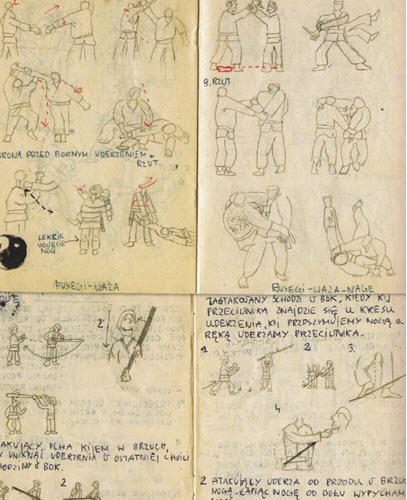 9. RZUT
RONA PRZED BOCZNYM UDERZENIEM +
RZUT
LEKKIE
UGIĘCIE
NÓG
FUSEGI-WAZA
FUSEGI-WAZA-NAGE
ZAATAKOWANY SCHODZI W BOK, KIEDY KIJ
PRZECIWNIKA ZNAJDZIE SIĘ U KRESU
UDERZENIA, KIJ PRZYTRZYMUJEMY NOGĄ A
RĘKĄ UDERZAMY PRZECIWNIKA.
1
2
3.
2
4
AKUJĄCY PCHA KIJEM W BRZUCH,
Y UNIKNĄĆ UDERZENIA W OSTATNIEJ CHWILI
HODZIMY W BOK.
2
2 ATAKUJĄCY UDERZA OD PRZODU W BRZUC
NOGĄ. ŁAPIĄC NOGĘ OD DOŁU WYPYCHAM